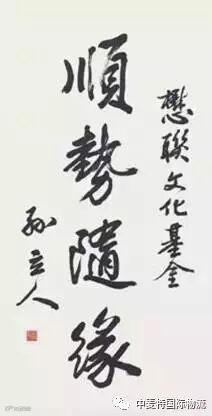 懋聯文化基金
順勢隨緣
孫立人
中麦特国际物流